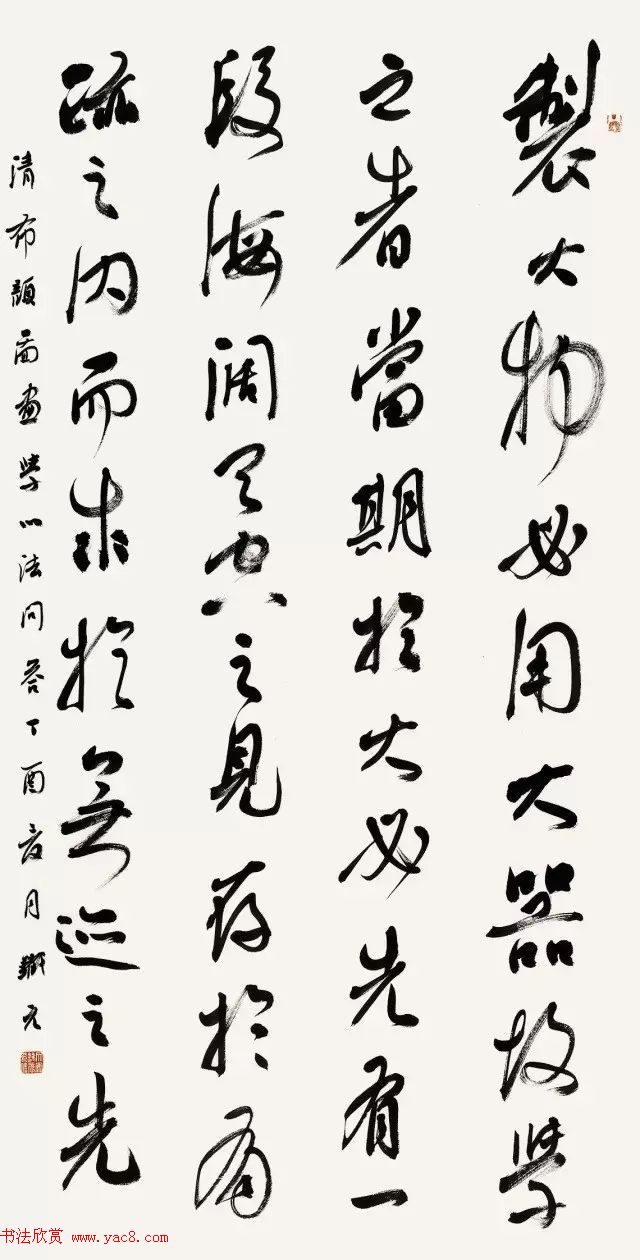 製大物必用大器故學
之者當期於大必先有一
段海闊天空之見存於有
跡之内而求於無迹之先
清布顏圖畫學心法問答丁酉夏月
书法欣赏 www.yac8.com